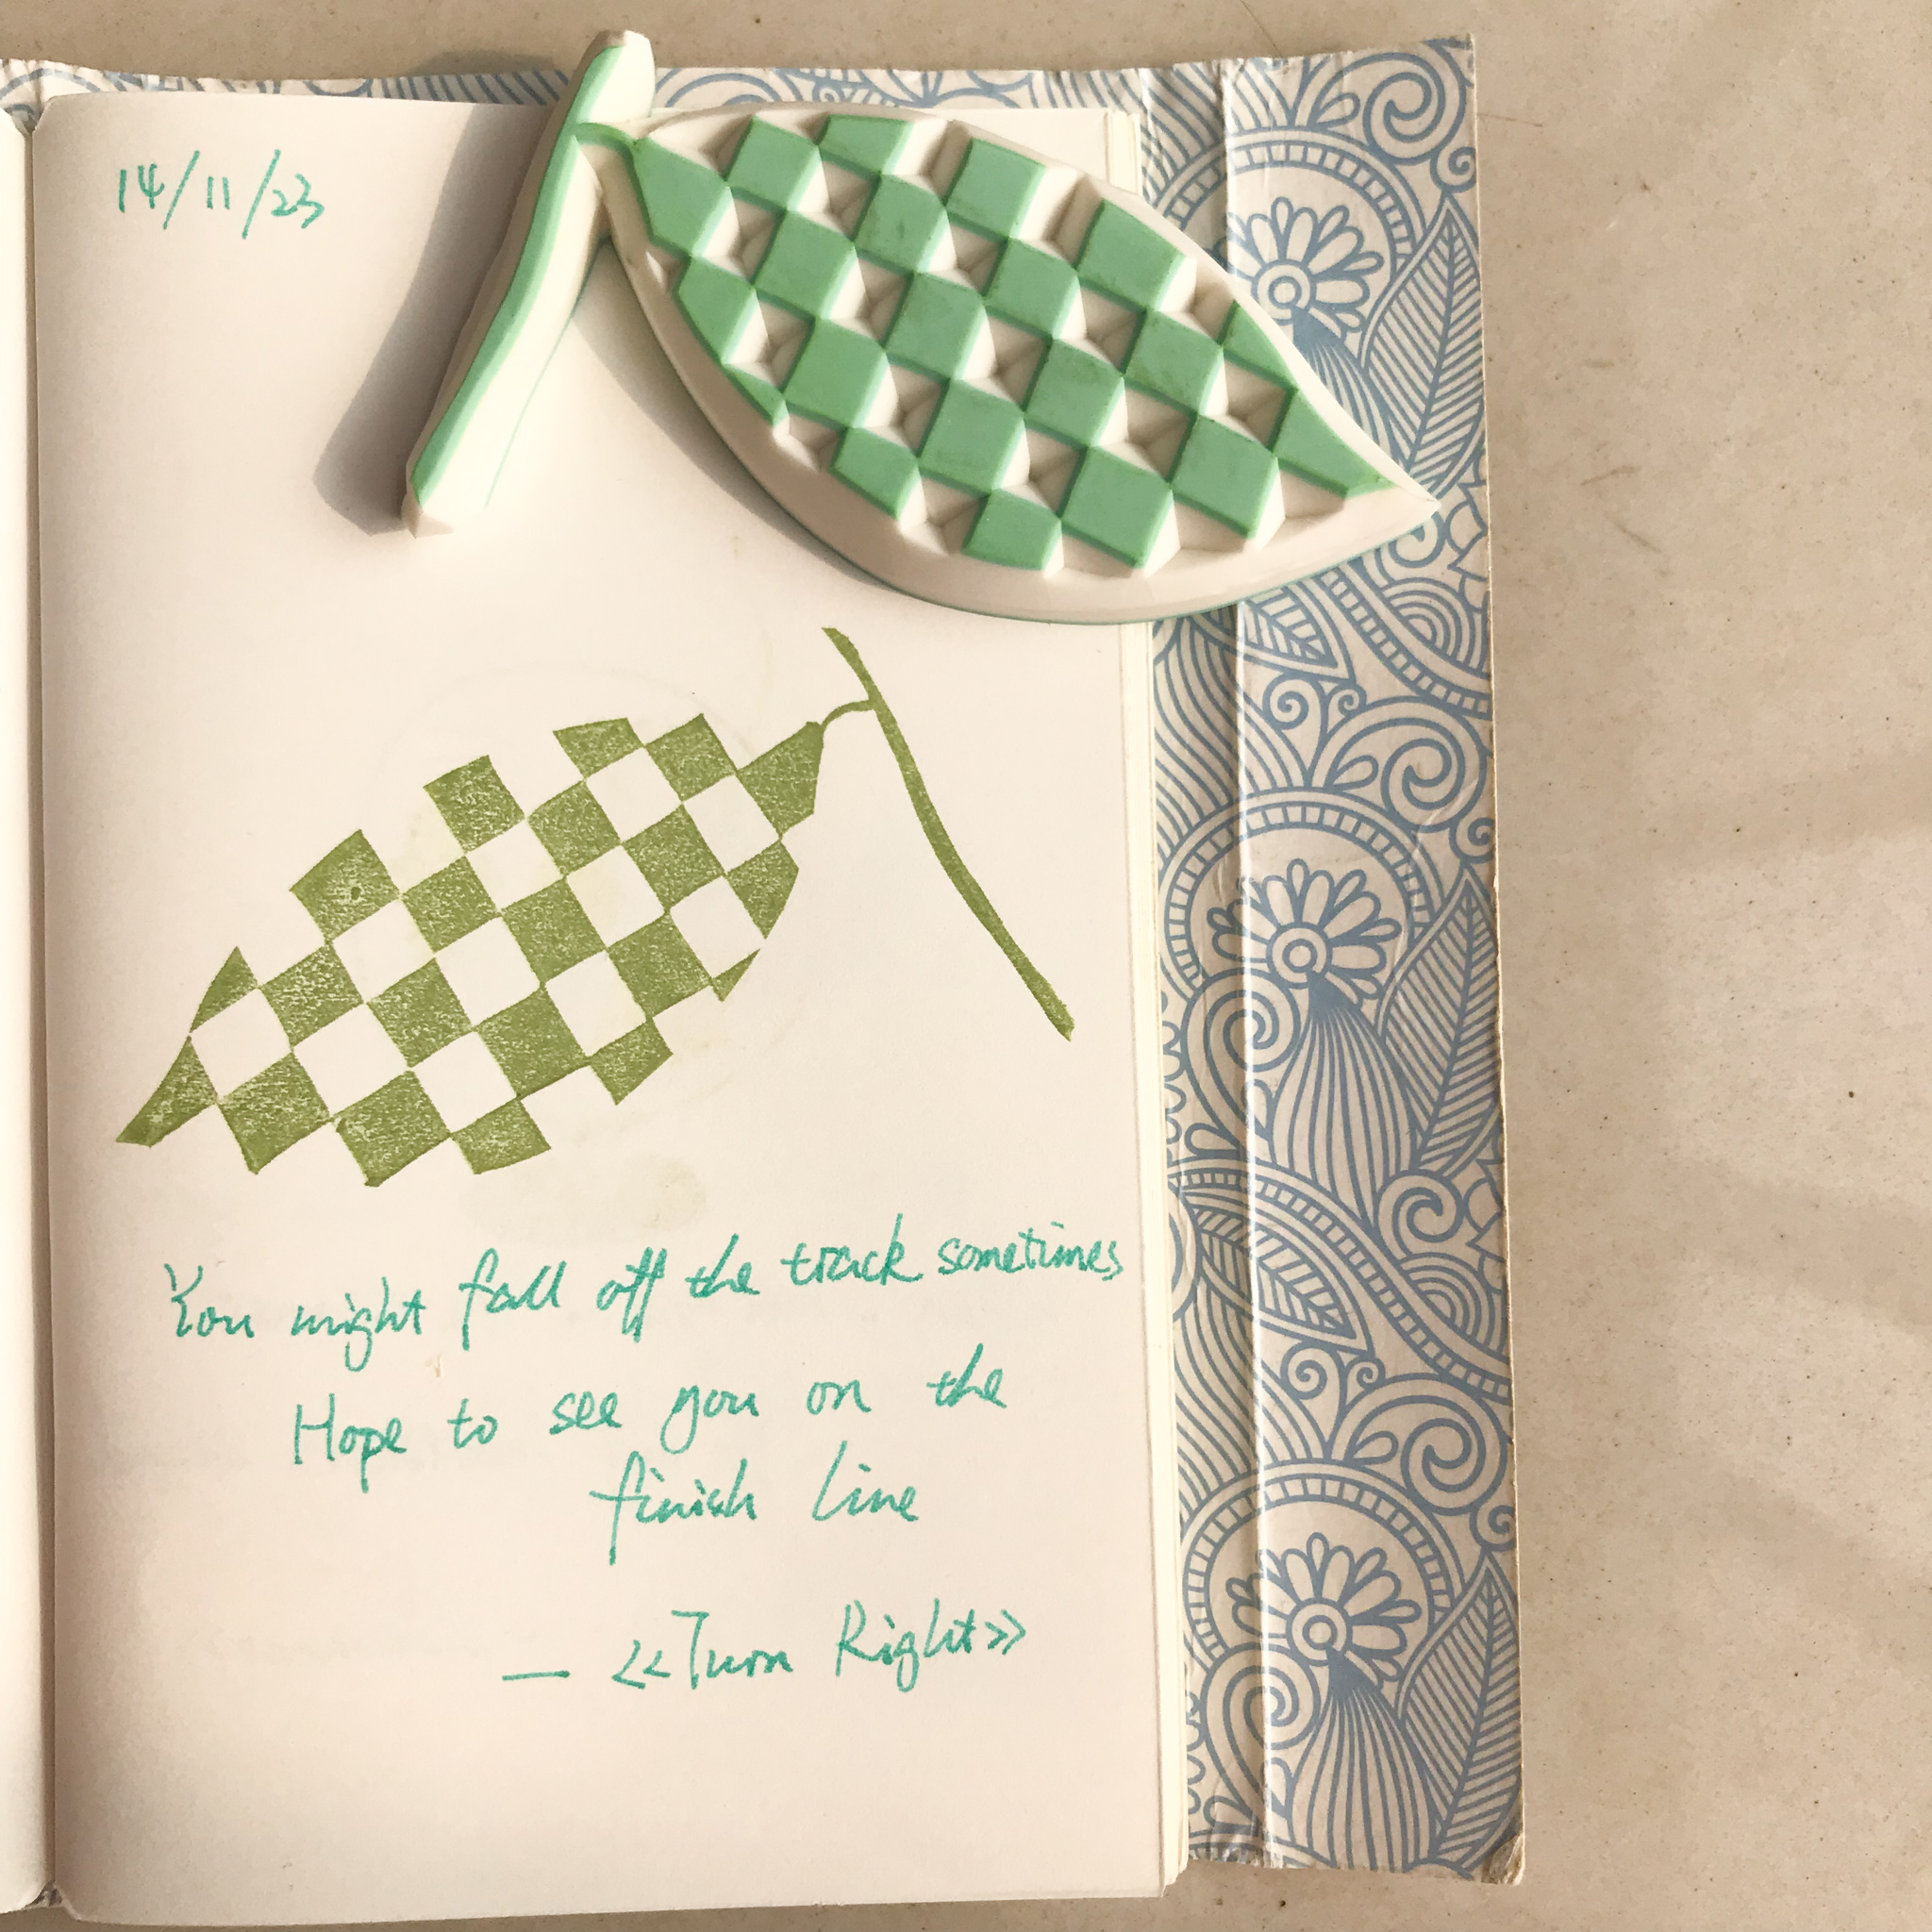 14/11/23
You might fall off the track sometimes
Hope to see you on the
finish line
— <<Turn Right>>